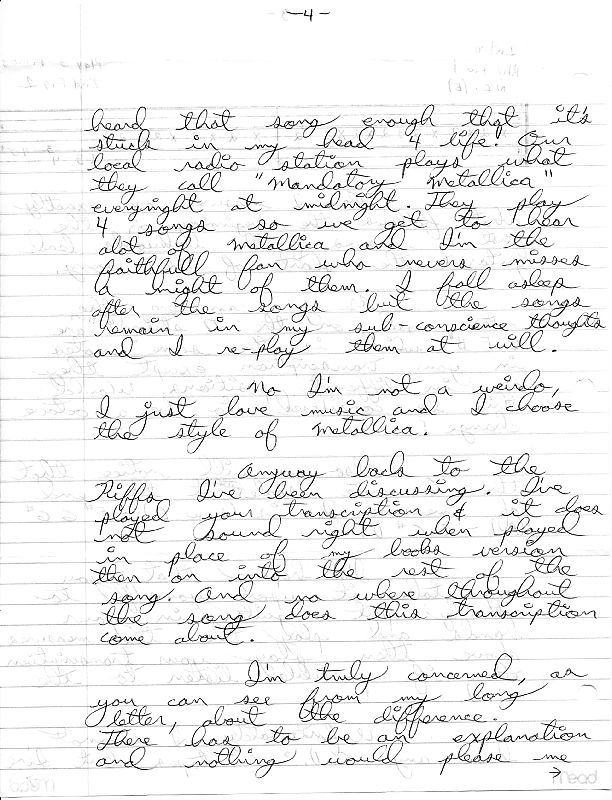 —4—
heard that song enough that it's
stuck in my head 4 life! Our
local radio station plays what
they call "Mandatory Metallica"
everynight at midnight. They play
4 songs so we get to hear
alot of Metallica and I'm the
faithfull fan who nevers misses
a night of them. I fall asleep
after the songs but the songs
remain in my sub-conscience thoughts
and I re-play them at will.
No I'm not a weirdo,
I just love music and I choose
the style of Metallica.
Anyway back to the
Riffs I've been discussing. I've
played your transcription & it does
not sound right when played
in place of my books version
then on into the rest of the
song. And no where throughout
the song does this transcription
come about.
I'm truly concerned, as
you can see from my long
letter, about the difference.
There has to be an explanation
and nothing would please me
→